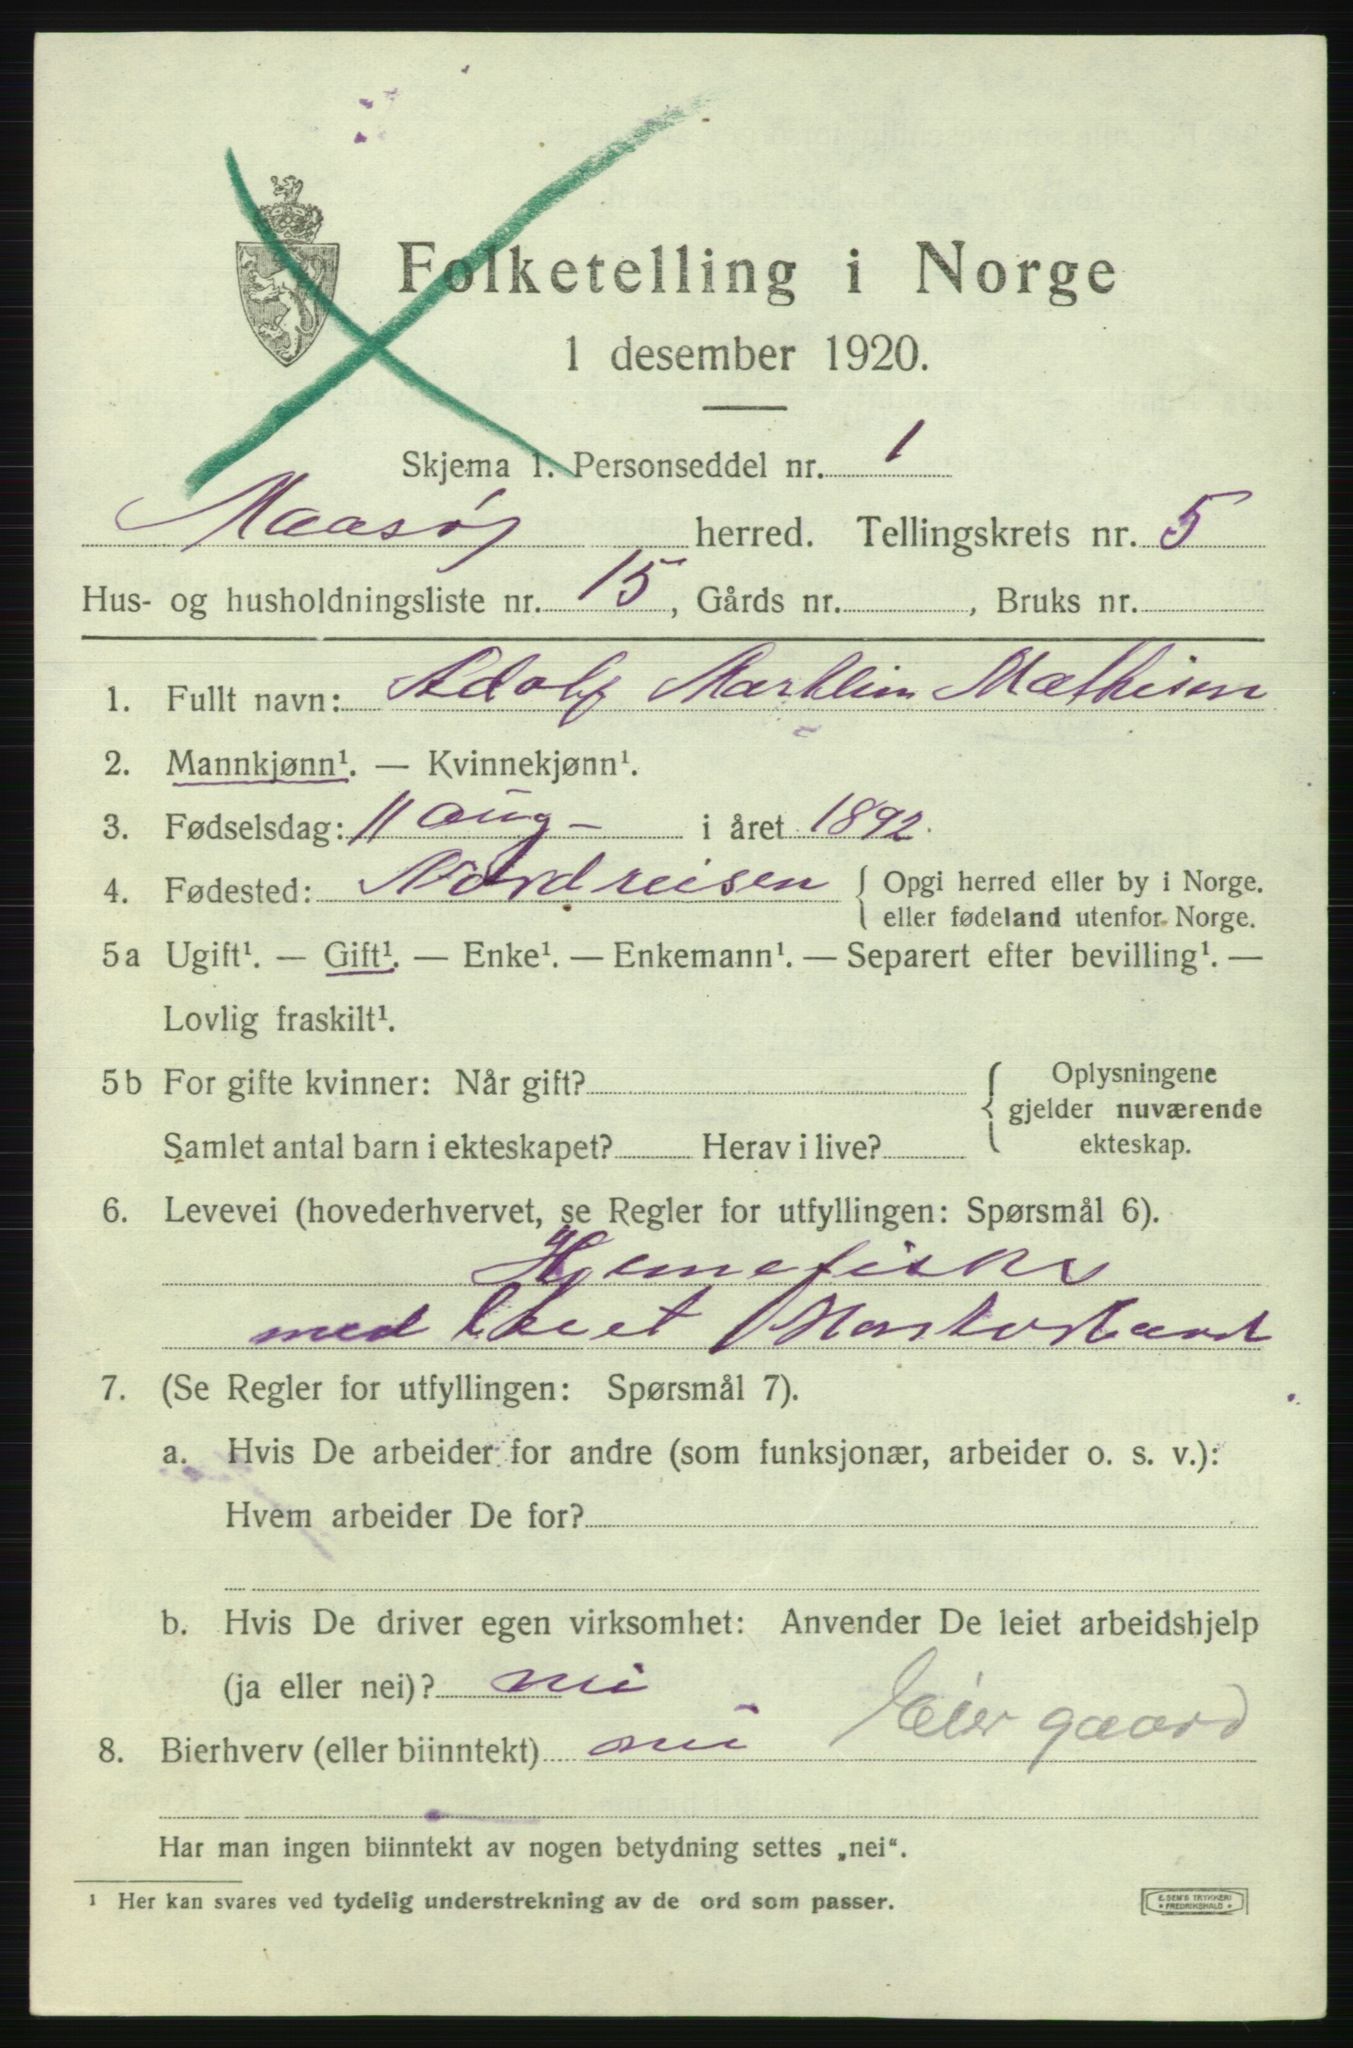 Folketelling i Norge
1 desember 1920.
Skjema 1. Personseddel nr. 1
Maasøy herred. Tellingskrets nr. 5
Hus- og husholdningsliste nr. 15, Gårds nr. , Bruks nr.
1. Fullt navn: Adolf Mathisen
2. Mannkjønn¹. — Kvinnekjønn¹.
3. Fødselsdag: 11 aug - i året 1892.
4. Fødested: Nordreisen { Opgi herred eller by i Norge.
eller fødeland utenfor Norge.
5a Ugift¹. — Gift¹. — Enke¹. — Enkemann¹. — Separert efter bevilling¹. —
Lovlig fraskilt¹.
5b For gifte kvinner: Når gift? { Oplysningene
gjelder nuværende
Samlet antal barn i ekteskapet? Herav i live? ekteskap.
6. Levevei (hovederhvervet, se Regler for utfyllingen: Spørsmål 6).
Hjemefisker
med
7. (Se Regler for utfyllingen: Spørsmål 7).
a. Hvis De arbeider for andre (som funksjonær, arbeider o. s. v.):
Hvem arbeider De for?
b. Hvis De driver egen virksomhet: Anvender De leiet arbeidshjelp
(ja eller nei)? nei
8. Bierhverv (eller biinntekt) nei Eier gaard
Har man ingen biinntekt av nogen betydning settes „nei“.
¹ Her kan svares ved tydelig understrekning av de ord som passer.
E. SEM'S TRYKKERI
FREDRIKSHALD